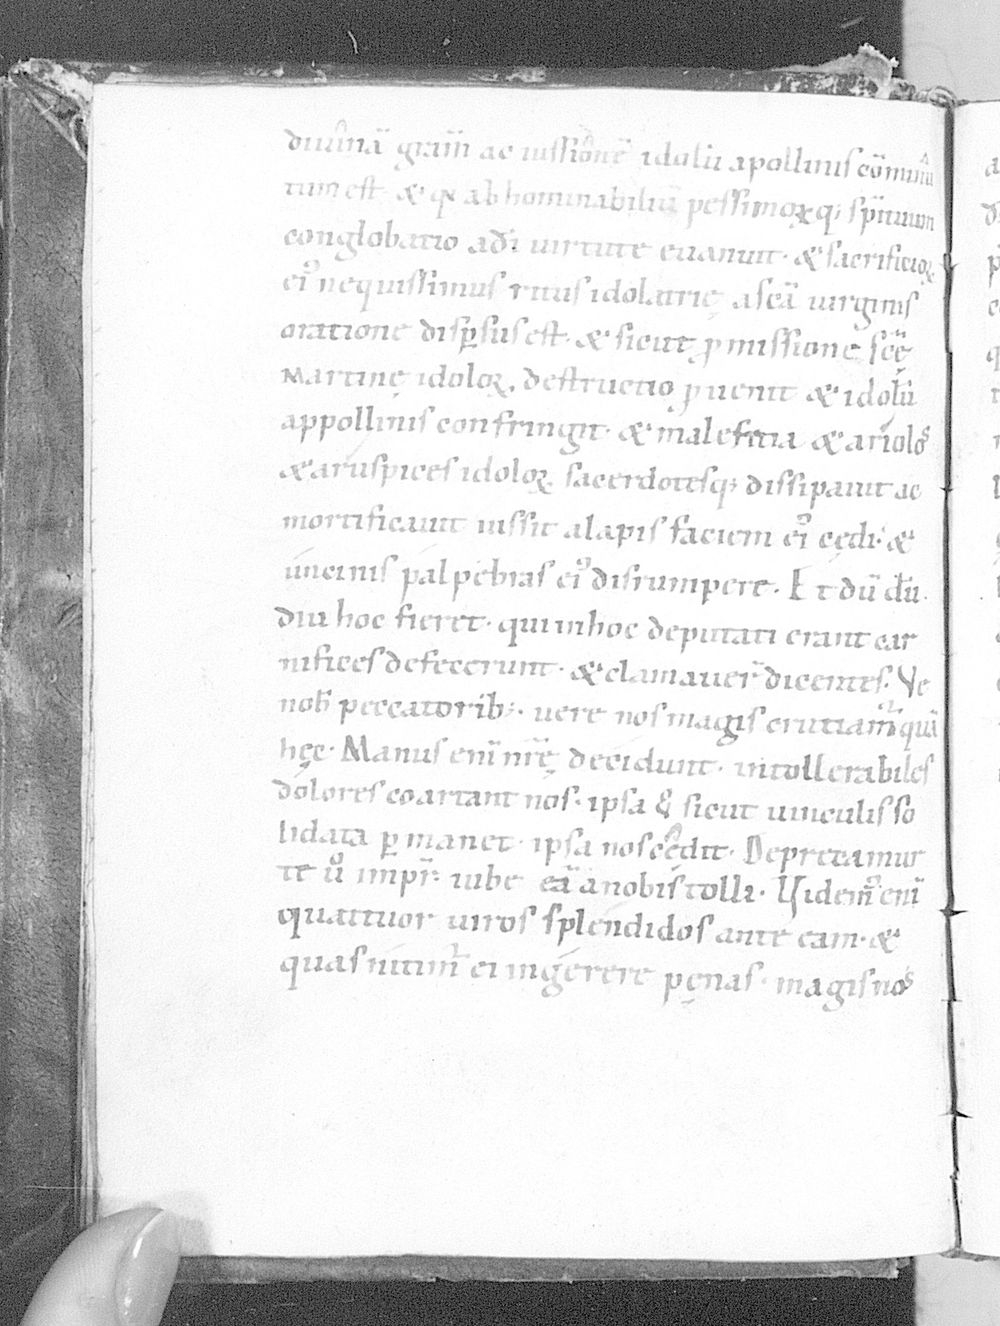 diuinā gr̄am ac iussionē idolū apollinis cōminu
tum est· & q ab hominabiliū pessimoꝝq; sp̄ituum
conglobatio a dī uirtute euanuit· & sacrificioꝝ
ei᾽ nequissimus ritus idolatrię a scā uirginis
oratione disꝑsus est· & sicut ꝓmissione scę̄
Martinę idoloꝝ destructio ꝓuenit & idolū
appollinis confringit· & maleficia & ariolos
& aruspices idoloꝝ sacerdotesq; dissipauit ac
mortificauit iussit alapis faciem ei᾽ cędi· &
uncinis palpebras ei᾽ disrumpere· Et dū diu
diu hoc fieret· qui in hoc deputati erant car
nifices defecerunt· & clamauer̄ dicentes· Ve
nob̄ peccatorib;· uere nos magis cruciam᾽ quā
hęc· Manus enī nr̄ę decidunt· intollerabiles
dolores coartant nos· ipsa & sicut uinculis so
lidata ꝑmanet· ipsa nos cędit· Deprecamur
te ů impr̄· iube eā a nobis tolli· Videm᾽ enī
quattuor uiros splendidos ante eam· &
quas nitim᾽ ei ingerere pęnas· magis nos